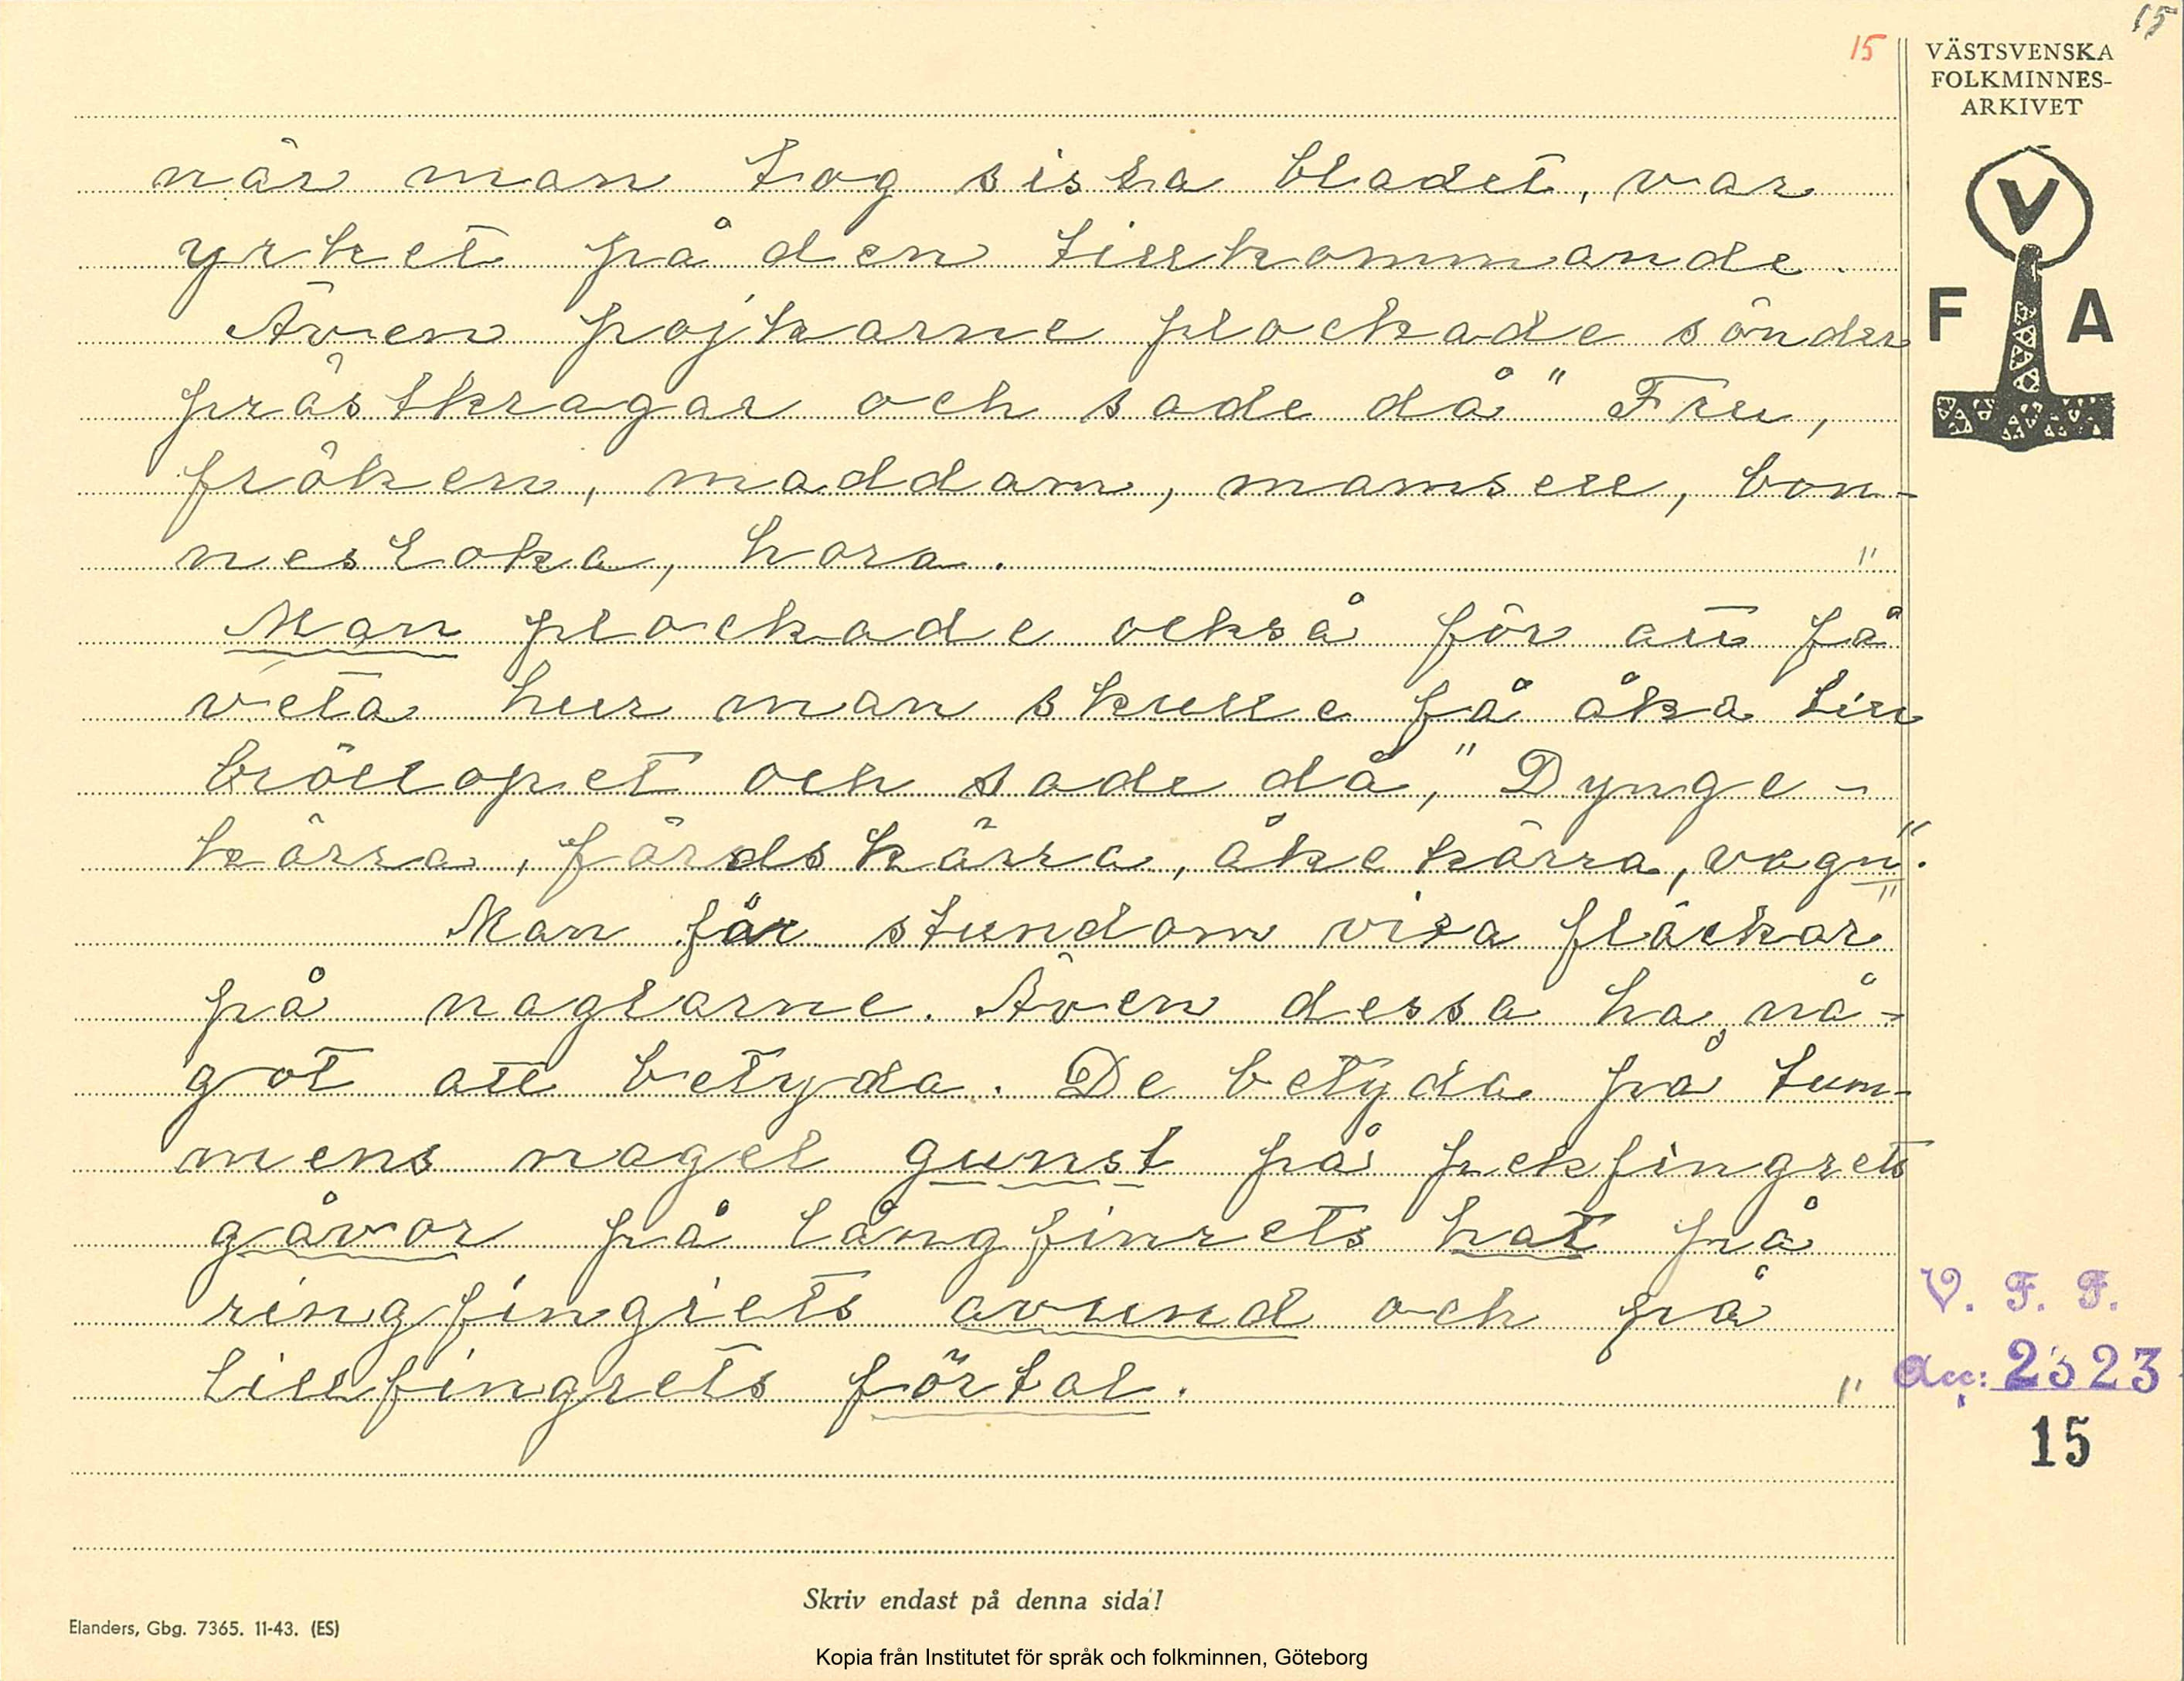 15
15
VÄSTSVENSKA
FOLKMINNES-
ARKIVET
V
F A
när man tog sista bladet, var
yrket på den tillkommande.
Även pojkarne plockade sönder
prästkragar och sade då " Fru,
fröken, maddam, mamsell, bon-
nestoka, hora. "
Man plockade också för att få
veta hur man skulle få åka till
bröllopet och sade då, " Dynge-
kärra, färdskärra, åkekärra, vagn".
"
Man får stundom visa fläckar
på naglarne. Även dessa ha nå-
got att betyda. De betyda på tum-
mens nagel gunst på pekfingrets
gåvor på långfinrets hat på
ringfingrets avund och på
lillfingrets förtal. "
V. F. F.
Acc: 2323
15
Skriv endast på denna sida!
Elanders, Gbg. 7365. 11-43. (ES)
Kopia från Institutet för språk och folkminnen, Göteborg